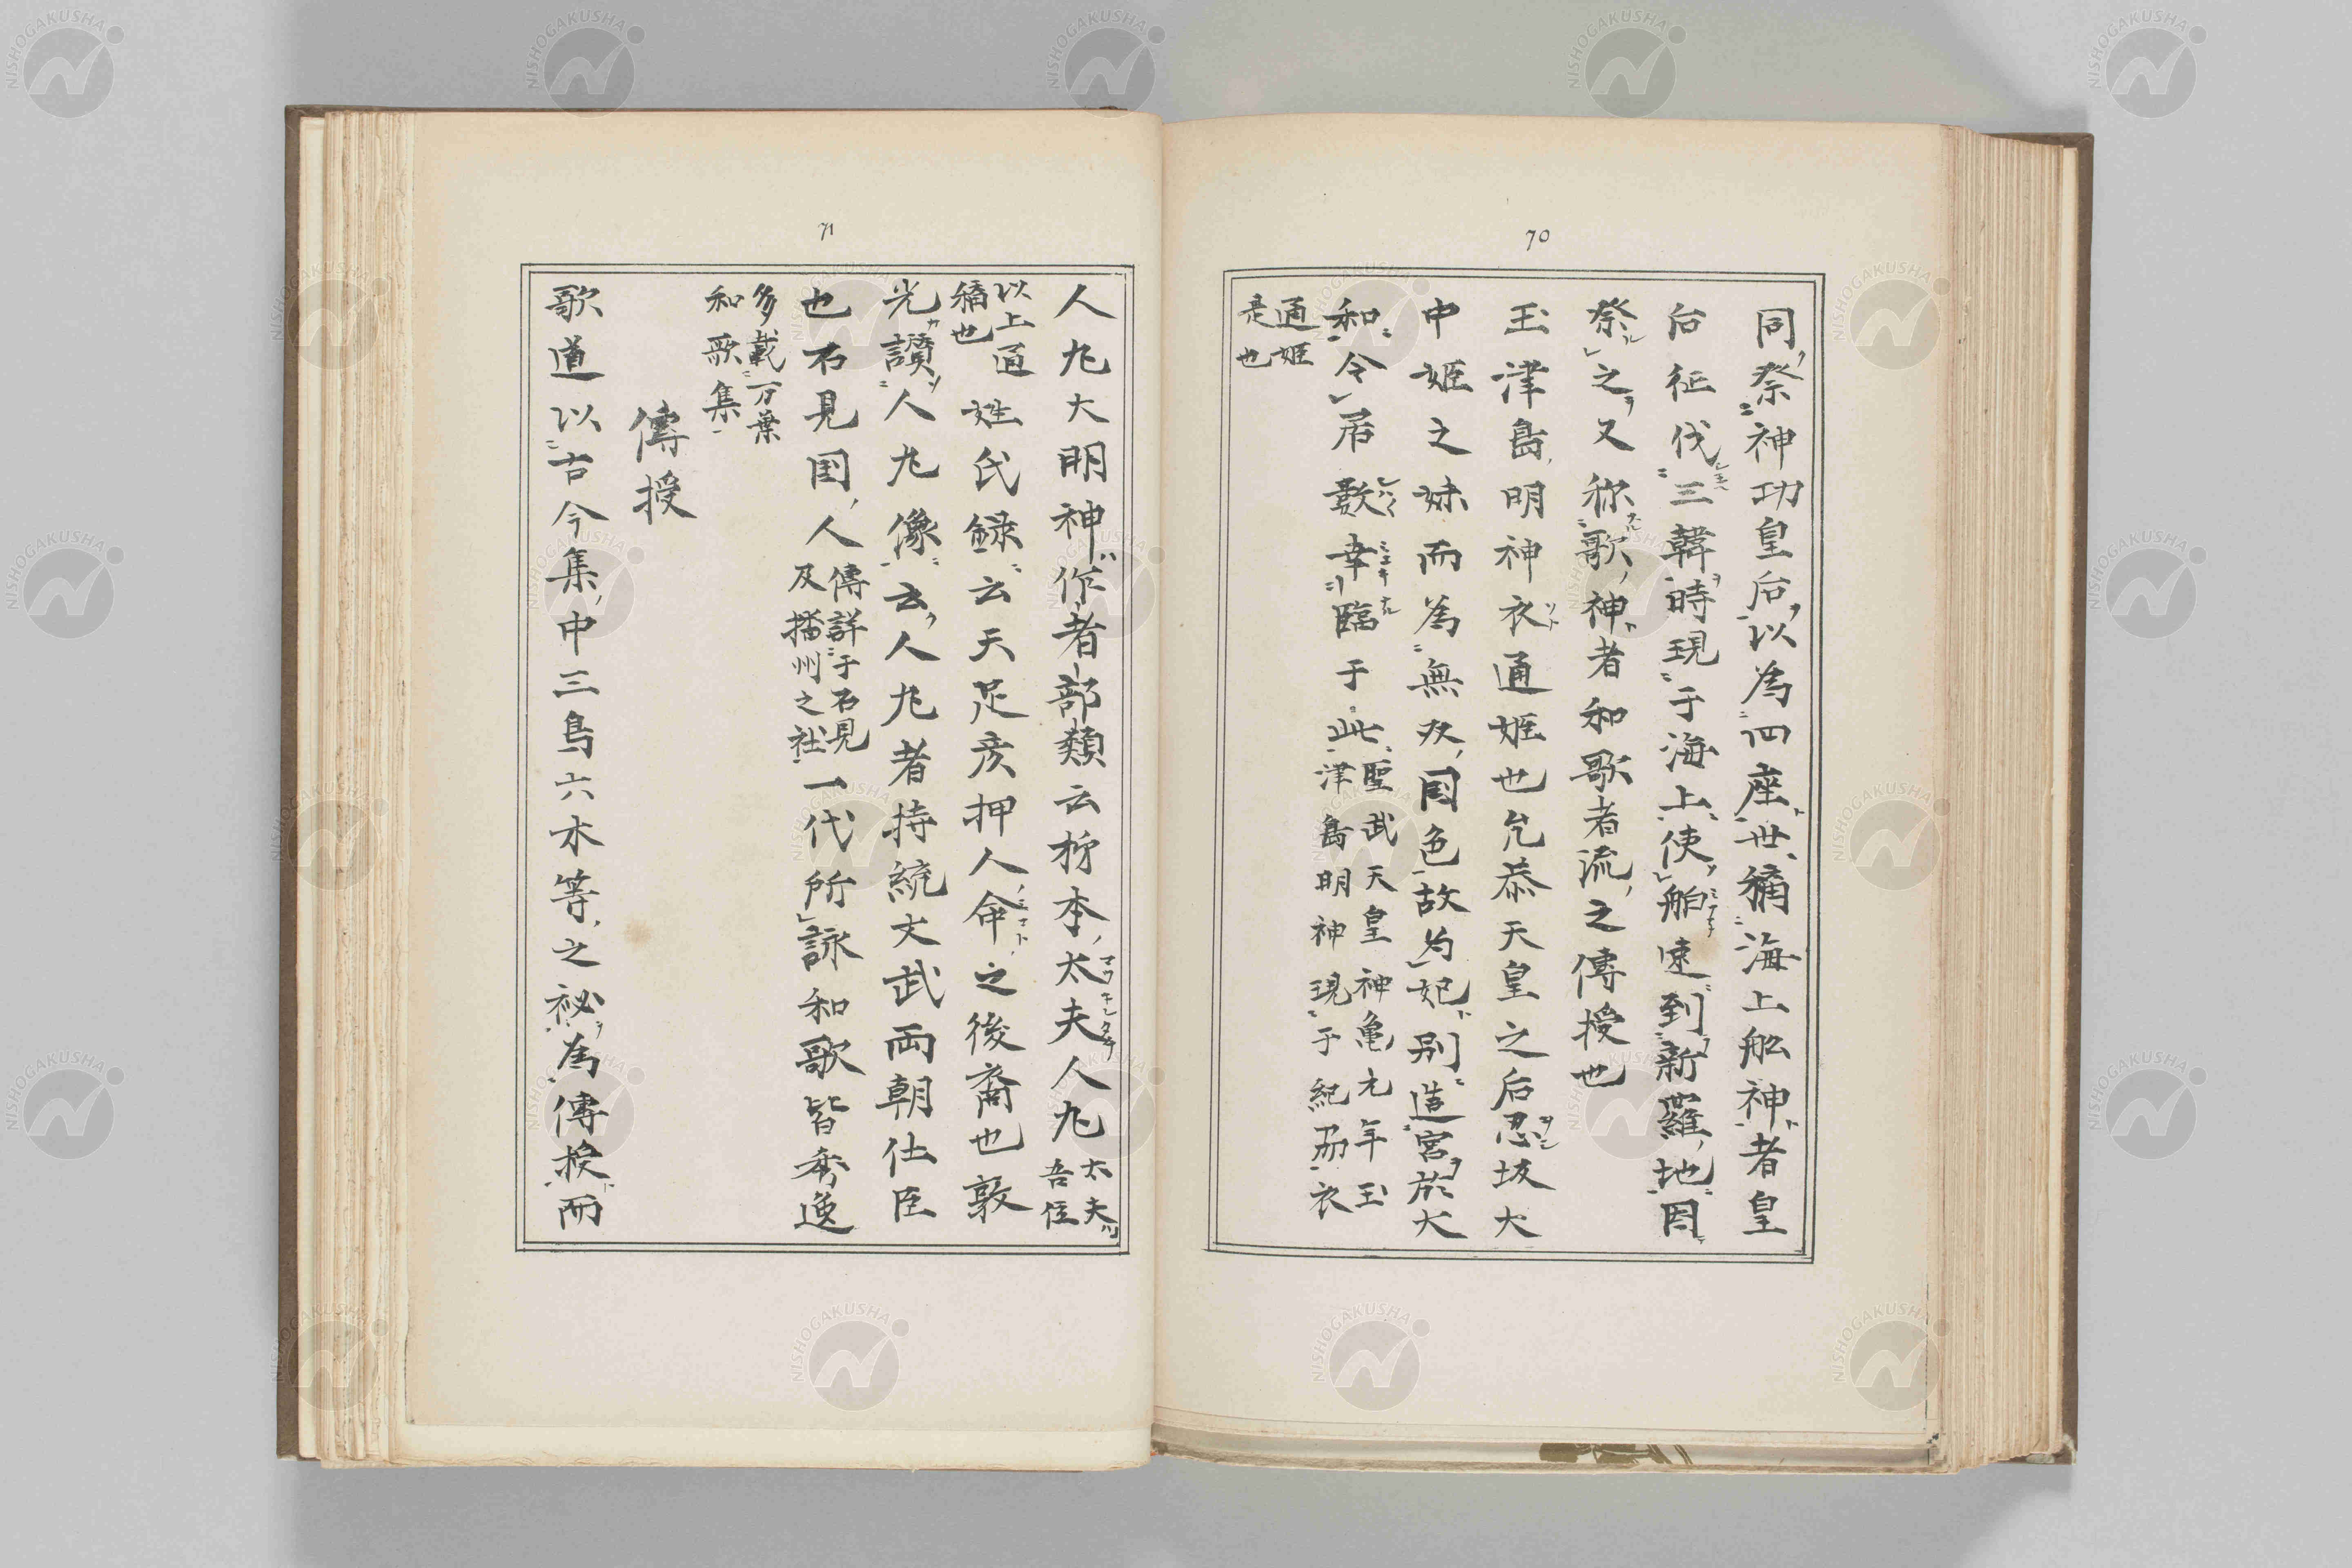 70
同祭神功皇后以為四座世稱海上舩神者皇
后征伐三韓時現于海上使舶速到新羅地因
祭之又称歌神者和歌者流之傳授也
玉津島明神衣通姫也允恭天皇之后忍坂大
中姫之妹而為無双国色故為妃別造宮於大
和令居数幸臨于此
聖武天皇神亀元年玉
津島明神現于紀刕衣
通姫
是也
71
人丸大明神作者部類云柿本太夫人丸
太夫
吾侄
以上通
稱也
姓氏録云天足彦押人命之後裔也敦
光讃人丸像云人丸者持統文武両朝仕臣
也石見国人
傳詳于石見
及播州之社
一代所詠和歌皆秀逸
多載万葉
和歌集
傳授
歌道以古今集中三鳥六木等之秘為傳授而